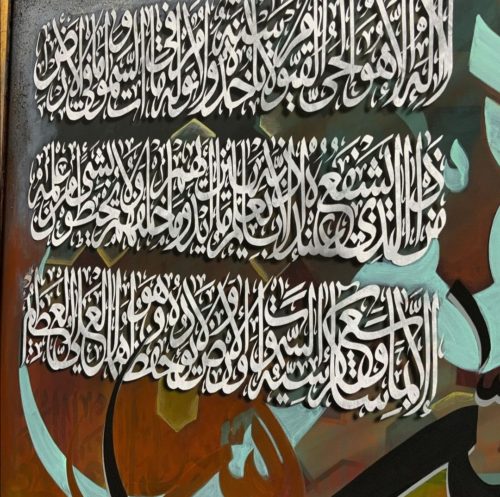 الله لا إله إلا هو الحي القيوم لا تأخذه سنة ولا نوم له ما في السموات وما في الأرض
من ذا الذي يشفع عنده إلا بإذنه يعلم ما بين أيديهم وما خلفهم ولا يحيطون بشيء من علمه
إلا بما شاء وسع كرسيه السموات والأرض ولا يؤده حفظهما وهو العلي العظيم